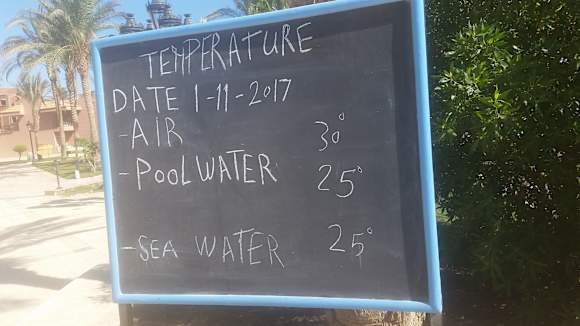 TEMPERATURE
DATE 1-11-2017
-AIR 30°
-POOL WATER 25°
-SEA WATER 25°